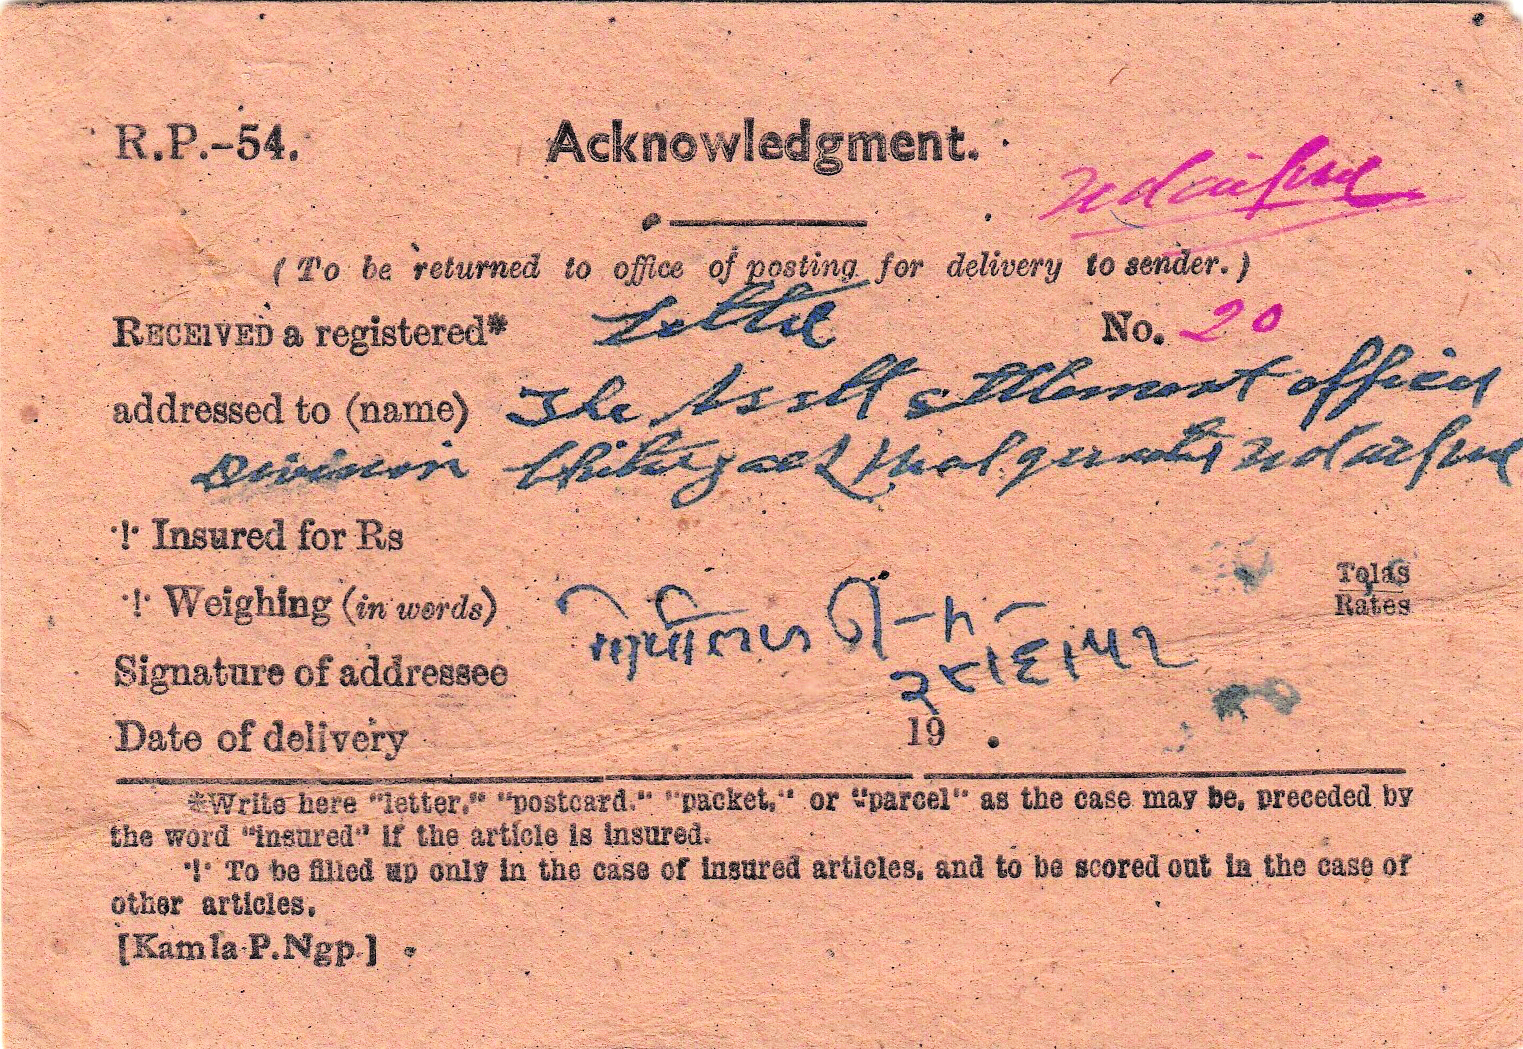 R.P.-54.
Acknowledgment.
udaipur
(To be returned to office of posting for delivery to sender.)
RECEIVED a registered* Letter No. 20
addressed to (name) The Asstt settlement officer
Division udaipur
·!· Insured for Rs
·!· Weighing (in words)
Tolas
Rates
Signature of addressee
Date of delivery 19 .
*Write here "letter," "postcard," "packet," or "parcel" as the case may be, preceded by
the word "insured" if the article is insured.
·!· To be filled up only in the case of insured articles, and to be scored out in the case of
other articles.
[Kamla P.Ngp.]